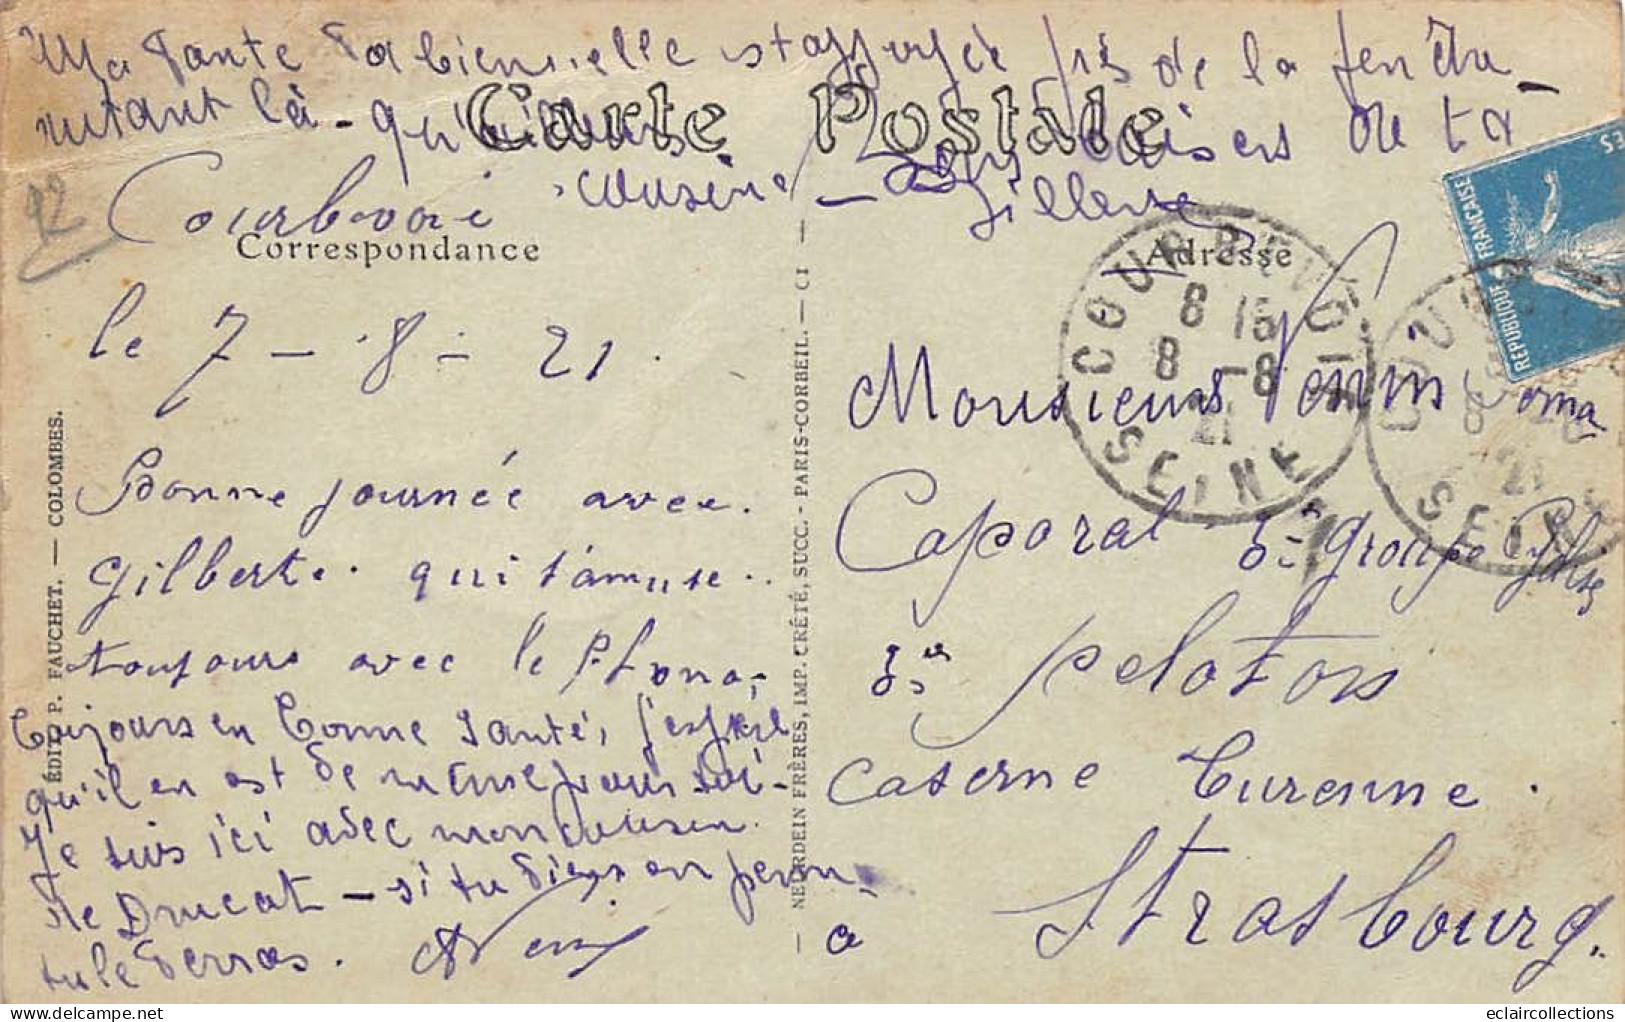 Ma tante Fabiennelle est appuyée près de la fenêtre
mutant là - qu'ailleurs
cousine baisers de ta
Gilberte
Carte Postale
92
Courbevoie
Correspondance
Adresse
le 7 - 8 - 21.
Bonne journée avec
Gilberte. qui s'amuse..
toujours avec le Phono.
Toujours en bonne santé, j'espère
qu'il en est de même pour toi.
Je suis ici avec mon cousin
de Ducat - si tu viens en perm.
tu le verras.
Monsieur Venin
Caporal 3e Groupe
3e peloton
Caserne Turenne.
à Strasbourg.
COURBEVOIE
8 15
8 - 8
21
SEINE
COURBEVOIE
21
SEINE
RÉPUBLIQUE FRANÇAISE
ÉDIT. P. FAUCHET. — COLOMBES.
NEURDEIN FRÈRES, IMP. CRÉTÉ, SUCC. - PARIS-CORBEIL. — CI
eclaircollections